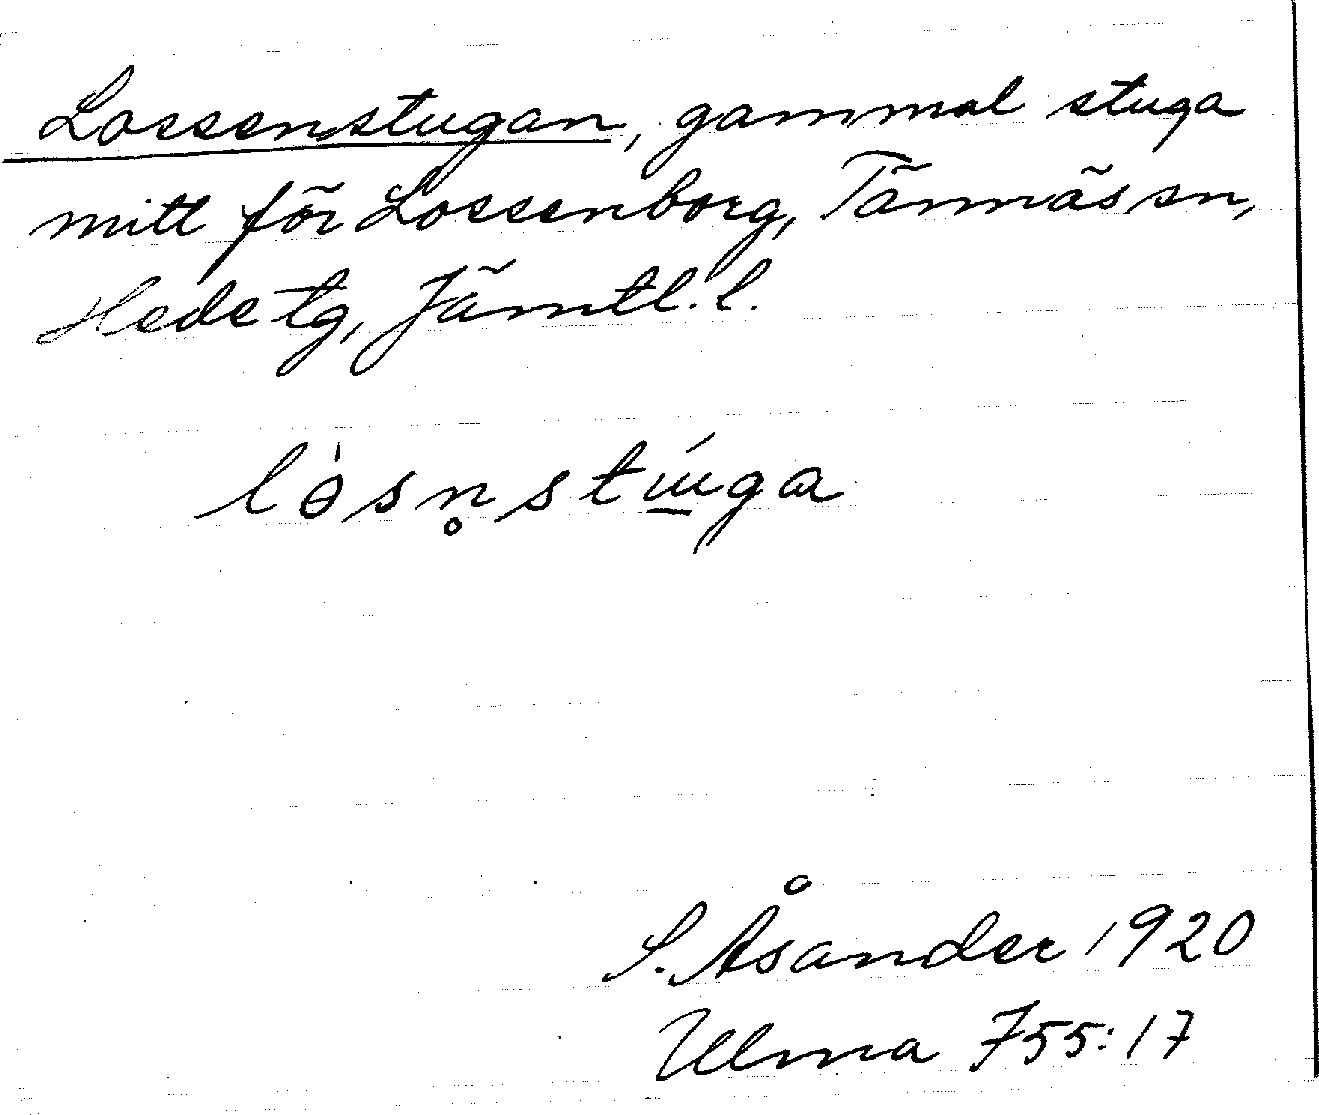 Lossenstugan, gammal stuga
mitt för Lossenborg, Tännäs sn,
Hede tg, Jämtl. l.
S. Åsander 1920
Ulma 755:17